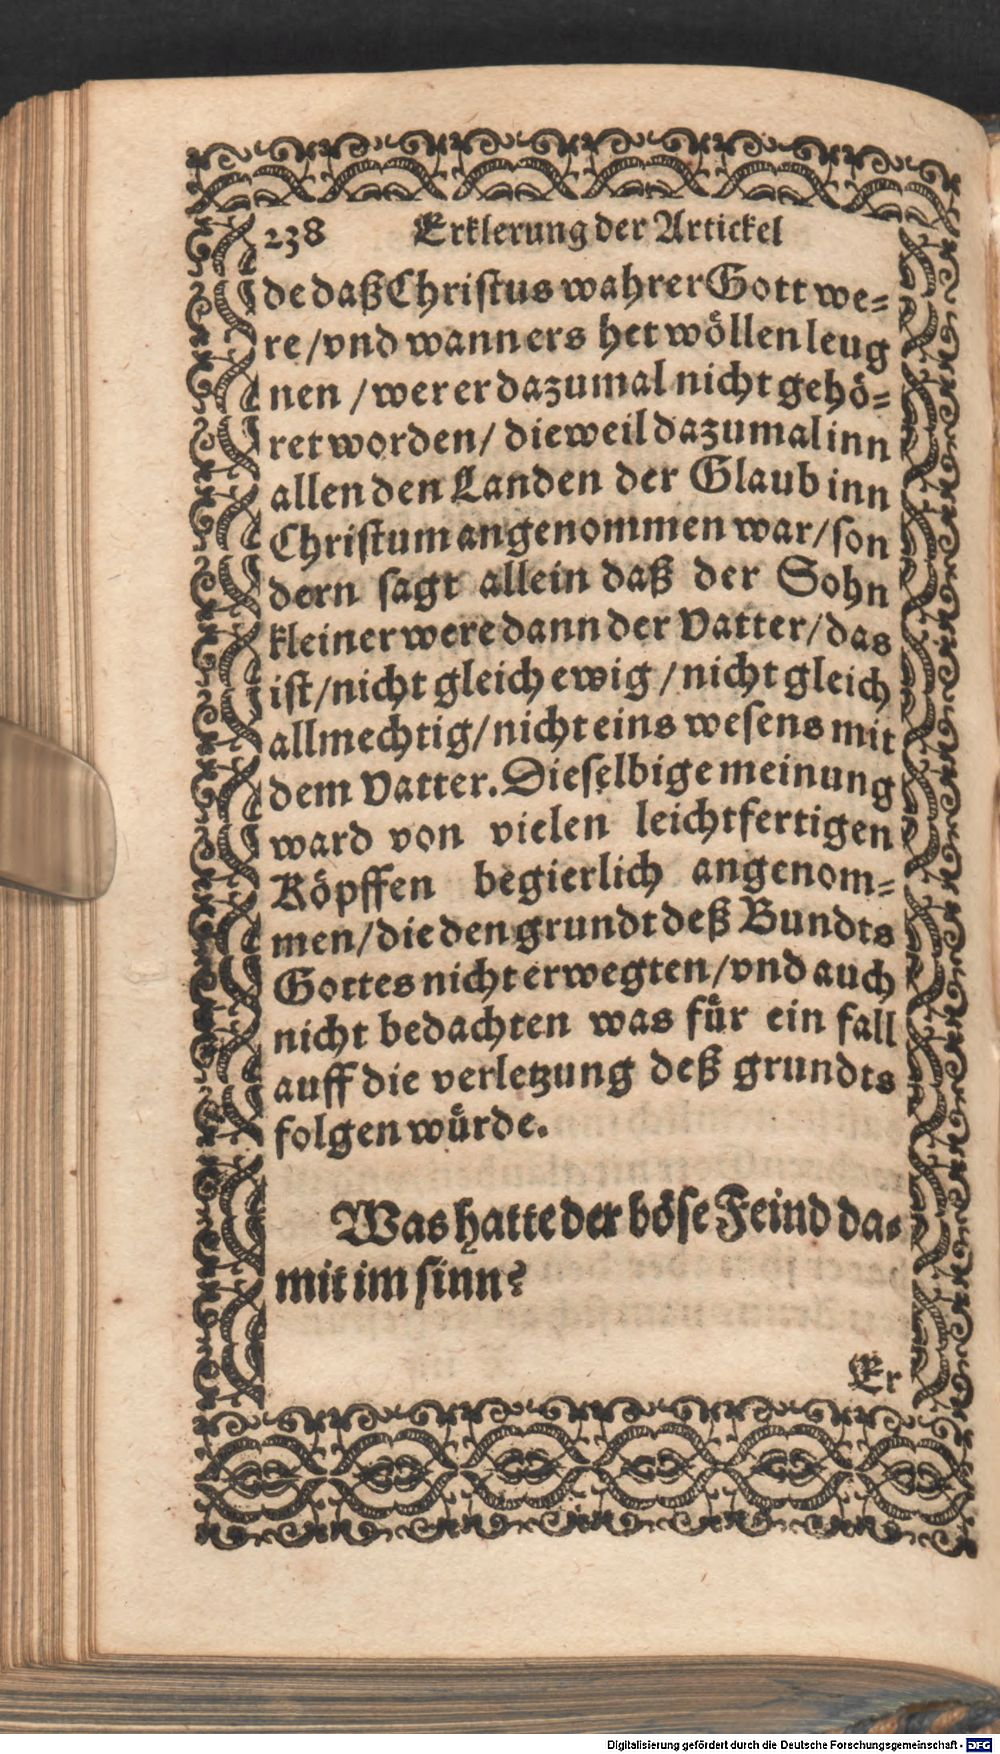 238 Erklerung der Artickel
de daß Christus wahrer Gott we=
re / vnd wann ers het wöllen leug
nen / wer er dazumal nicht gehö=
ret worden / dieweil dazumal inn
allen den Landen der Glaub inn
Christum angenommen war / son
dern sagt allein daß der Sohn
kleiner were dann der Vatter / das
ist / nicht gleich ewig / nicht gleich
allmechtig / nicht eins wesens mit
dem Vatter. Dieselbige meinung
ward von vielen leichtfertigen
Köpffen begierlich angenom=
men / die den grundt deß Bundts
Gottes nicht erwegten / vnd auch
nicht bedachten was für ein fall
auff die verletzung deß grundts
folgen würde.
Was hatte der böse Feind da=
mit im sinn?
Er
Digitalisierung gefördert durch die Deutsche Forschungsgemeinschaft - DFG